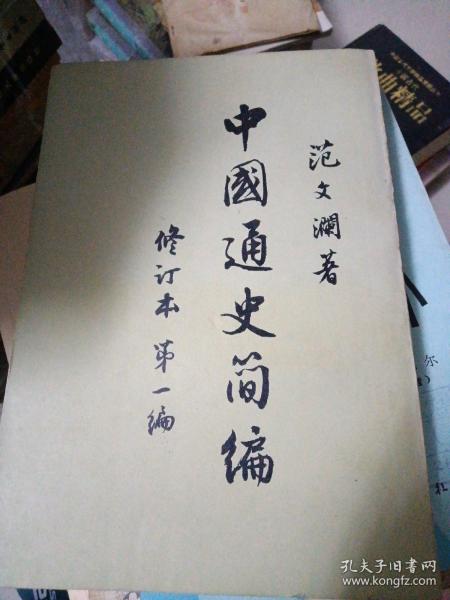 范文瀾著
中國通史简编
修订本 第一編
曲精品
尔
社
孔夫子旧书网
www.kongfz.com